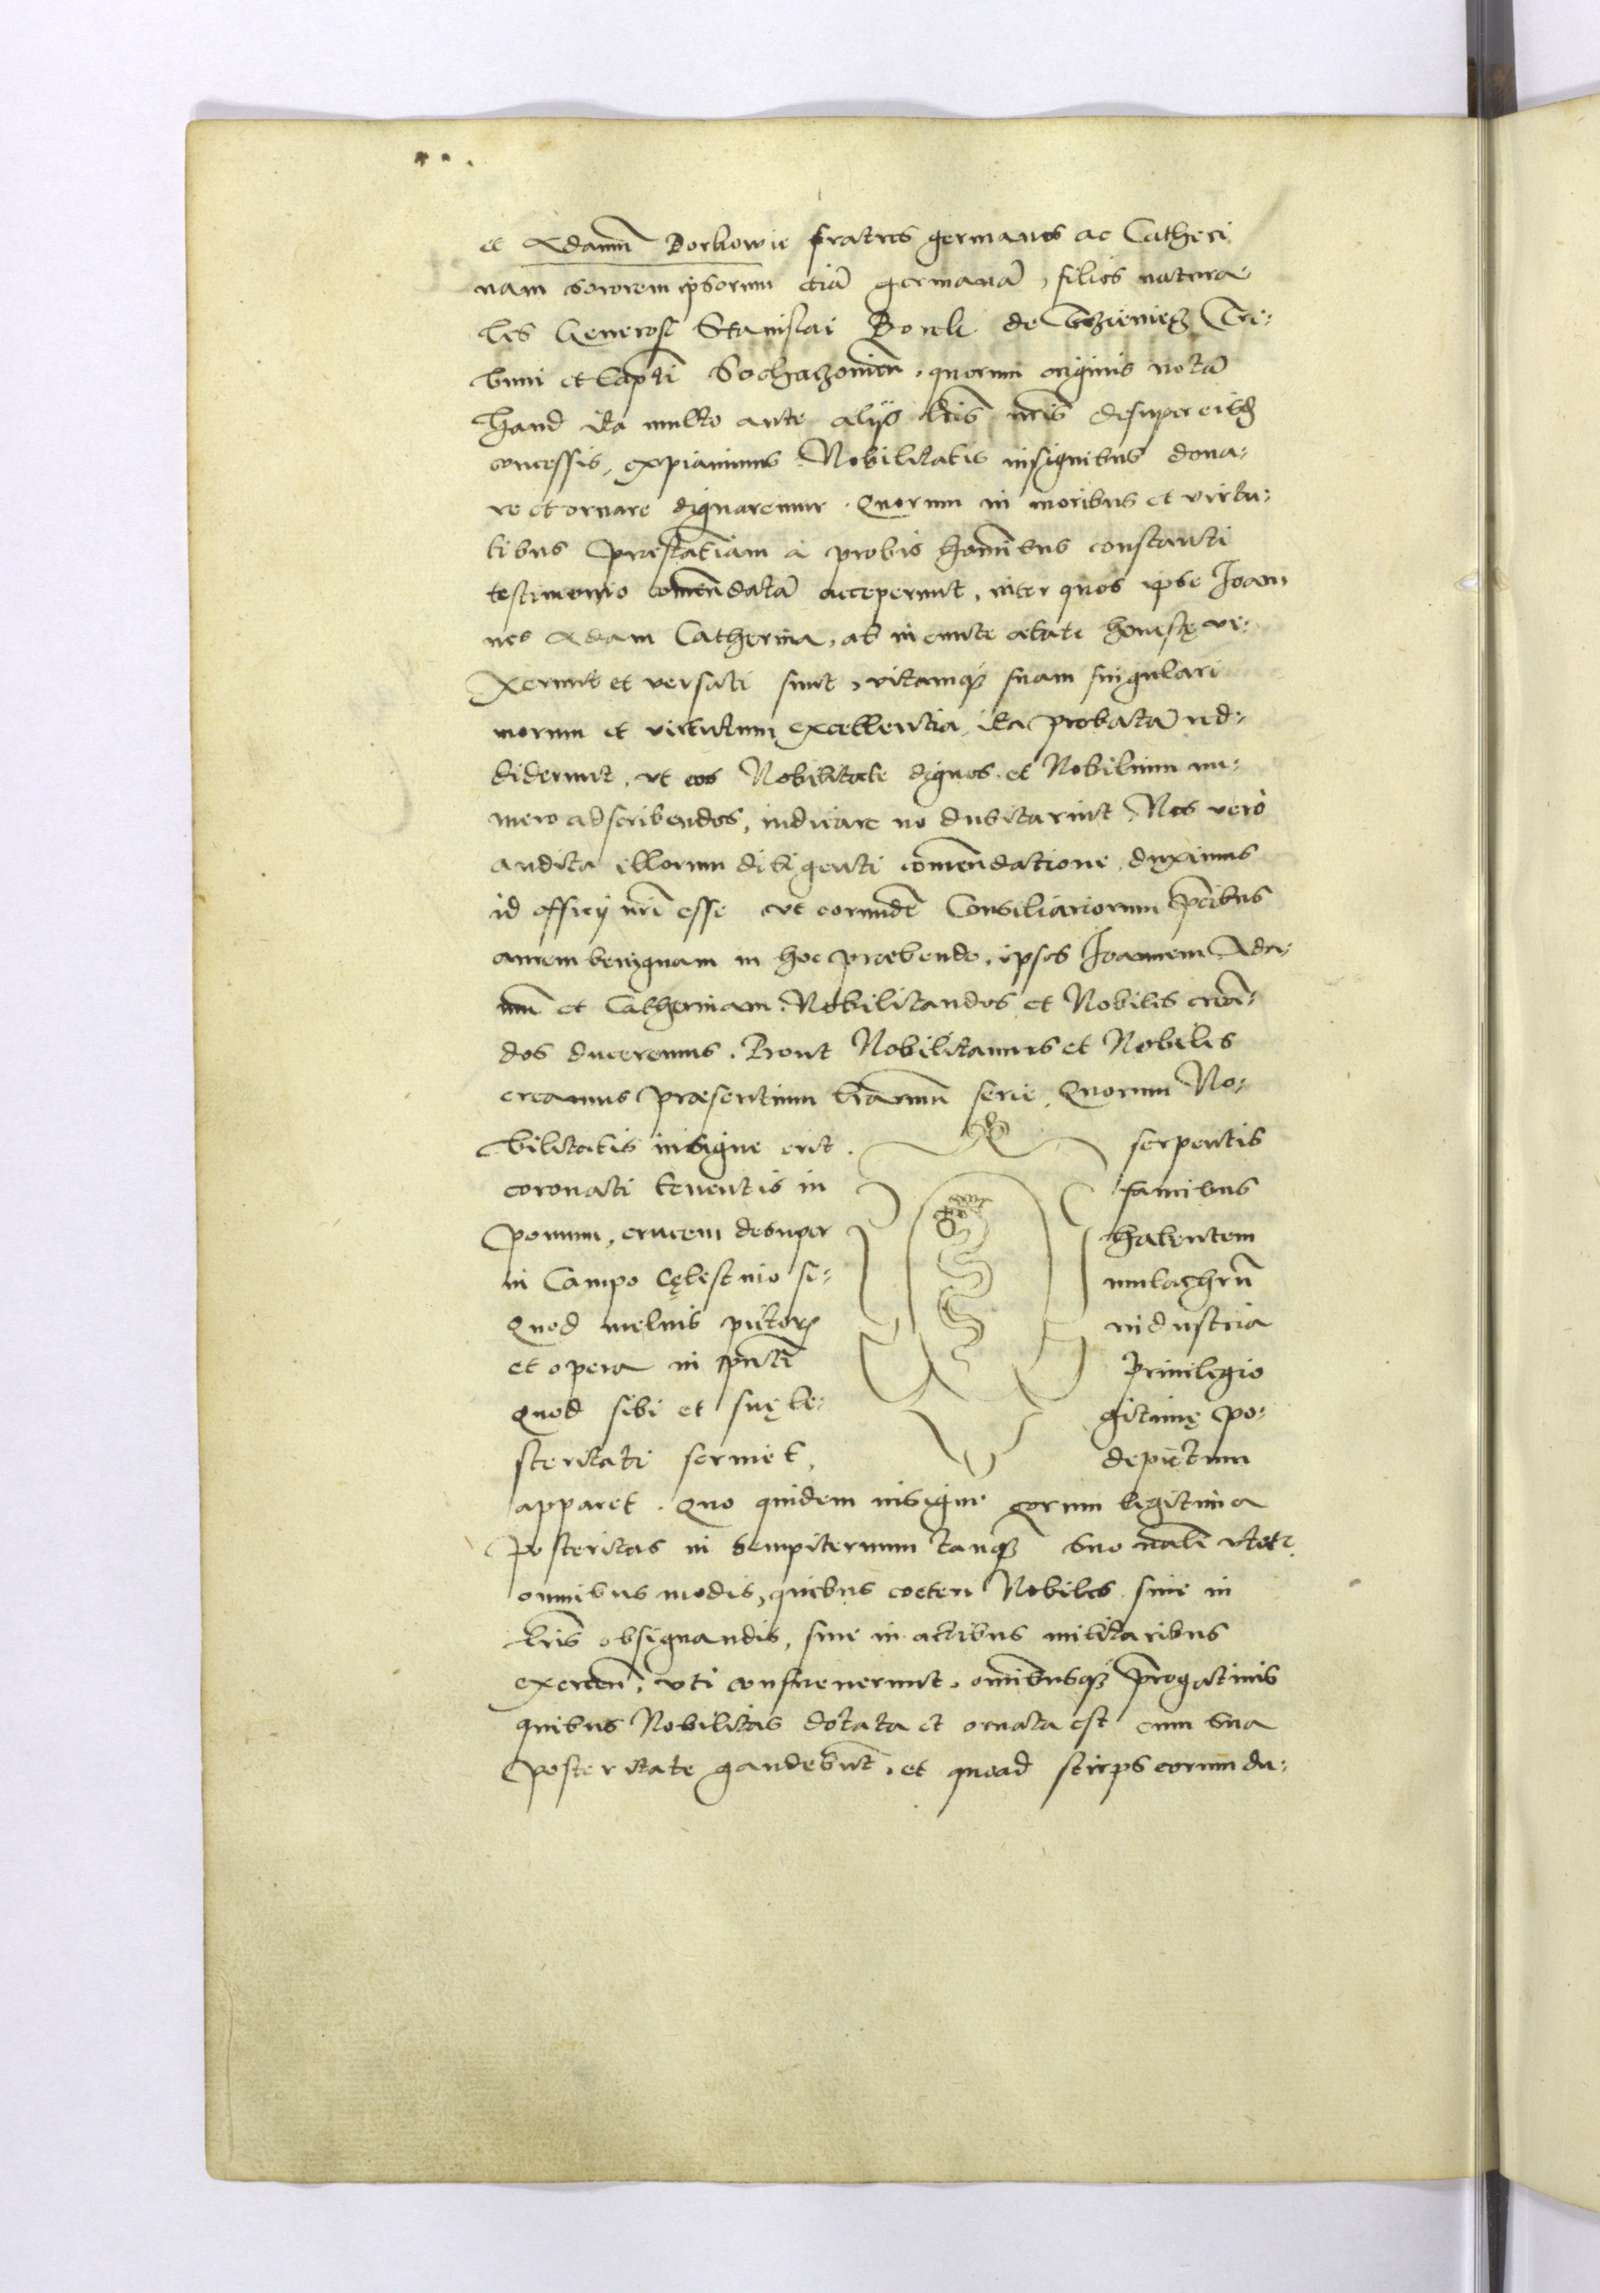 et Adamū Borkowie fratres germanos ac Catheri
nam sororem ipsorum etiā germanā, filios natura
les Generosi Stanislai Borek de Tri:
buni et Captī Sochaczovień, quorum originis notā
haud ita multo ante alijs lrīs nrīs desuper eisdē
concessis, expiavimus Nobilitatis insignibus dona:
re et ornare dignaremur. Quorum in moribus et virtu:
tibus præstātiam à probis homībus constanti
testimonio comēndatā acceperunt, inter quos ipse Joan
nes Adam Catherina, ab ineunte ætate honestę ve:
xerunt et versati sunt, vitamq̃ suam singulari
morum et virtutum excellentia, ita probatā red:
diderunt, ut eos Nobilitate dignos et Nobilium nu:
mero adscribendos, indicare nō dubitarint Nos verò
audita illorum diligenti comēndatione, duximus
id officij nrī esse ut eorundē Consiliariorum prēcibus
aurem benignam in hoc præbendo, ipsos Joannem Ada:
mū et Catherinam Nobilitandos et Nobiles creā:
dos duceremus. Prout Nobilitamus et Nobiles
creamus præsentium lrārum serie, Quorum No:
bilitatis insigne erit serpentis
coronati tenentis in faucibus
pomum, crucem desuper habentem
in Campo cęlestino si: mulachrū
Quod melius pictorꝭ industria
et opera in pn̄ti Privilegio
Quod sibi et suę le: gitimę po:
steritati serviet, depictum
apparet. Quo quidem insigne eorum legitima
posteritas in sempiternum tanq̃ suo nālī utetr̃
omnibus modis, quibus cæteri Nobiles sive in
lrīs obsignandis, sive in actibus militaribus
exercēn, uti consueverunt, omībusq̃ prērogativis
quibus Nobilitas dotata et ornata est cum sua
posteritate gaudebūt, et quoad stirps eorum du: